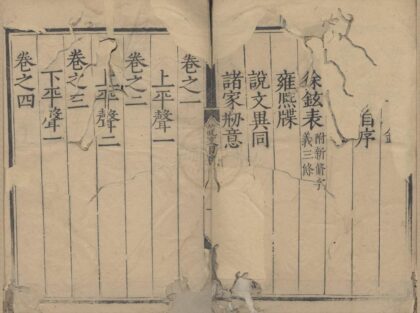 自序
徐鉉表 附新修字義三條
雍熈牒
說文異同
諸家刱意
卷之一
上平聲一
卷之二
上平聲二
卷之三
下平聲一
卷之四